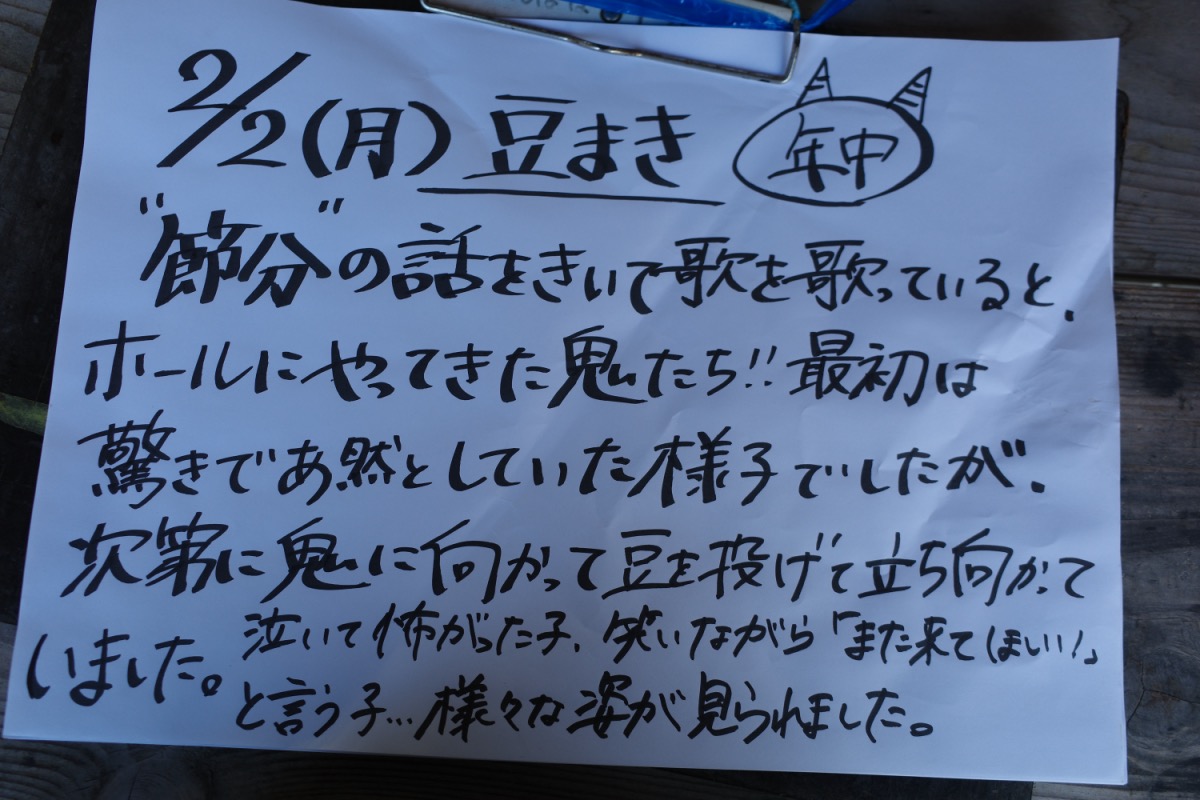 2/2(月) 豆まき 年中
"節分"の話をきいて歌を歌っていると、
ホールにやってきた鬼たち!! 最初は
驚きであ然としていた様子でしたが、
次第に鬼に向かって豆を投げて立ち向かって
いました。泣いて怖がった子、笑いながら「また来てほしい!」
と言う子…様々な姿が見られました。